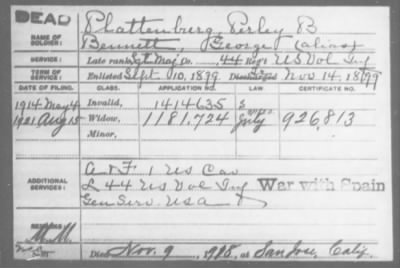 DEAD
NAME OF SOLDIER: Plattenburg, Perley B
Bennett, George (alias)
SERVICE: Late rank Sgt Maj Co. 44 Reg't US Vol Inf
TERM OF SERVICE: Enlisted Sept 10, 1899 Discharged Nov 14, 1899
DATE OF FILING. CLASS. APPLICATION NO. LAW CERTIFICATE NO.
1914 May 4 Invalid, 1414635 S
1921 Aug 15 Widow, 1181,724 July 926,813
Minor,
ADDITIONAL SERVICES: A & F. 1 US Cav
L 44 US Vol Inf War with Spain
Gen Serv. USA
REMARKS:
M.M.
Died Nov. 9, 1918, at San Jose, Calif.